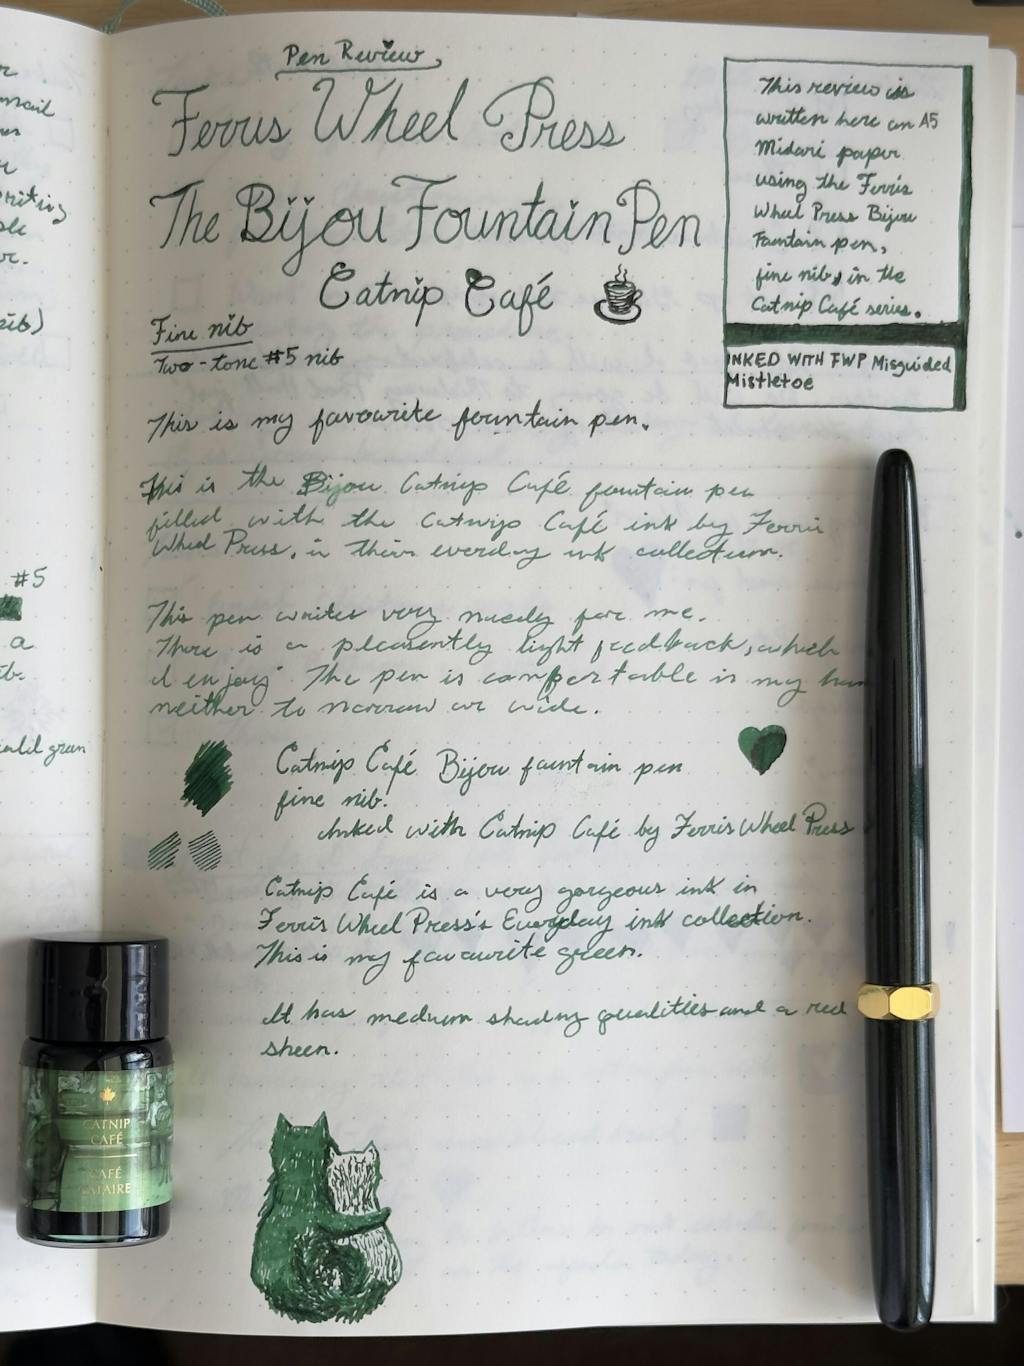 Pen Review
Ferris Wheel Press
The Bijou Fountain Pen
Catnip Café
Fine nib
Two-tone #5 nib
This review is
written here on A5
Midori paper
using the Ferris
Wheel Press Bijou
Fountain pen,
fine nib, in the
Catnip Café series.
INKED WITH FWP Misguided
Mistletoe
This is my favourite fountain pen.
This is the Bijou Catnip Café fountain pen
filled with the Catnip Café ink by Ferris
Wheel Press, in their everday ink collection.
This pen writes very nicely for me.
There is a pleasently light feedback, which
I enjoy. The pen is comfortable in my
neither to narrow or wide.
Catnip Café Bijou fountain pen
fine nib.
Inked with Catnip Café by Ferris Wheel Press
Catnip Café is a very gorgeous ink in
Ferris Wheel Press's Everyday ink collection.
This is my favourite green.
It has medium shading qualities and a red
sheen.
#5
a
CATNIP
CAFÉ
CAFÉ